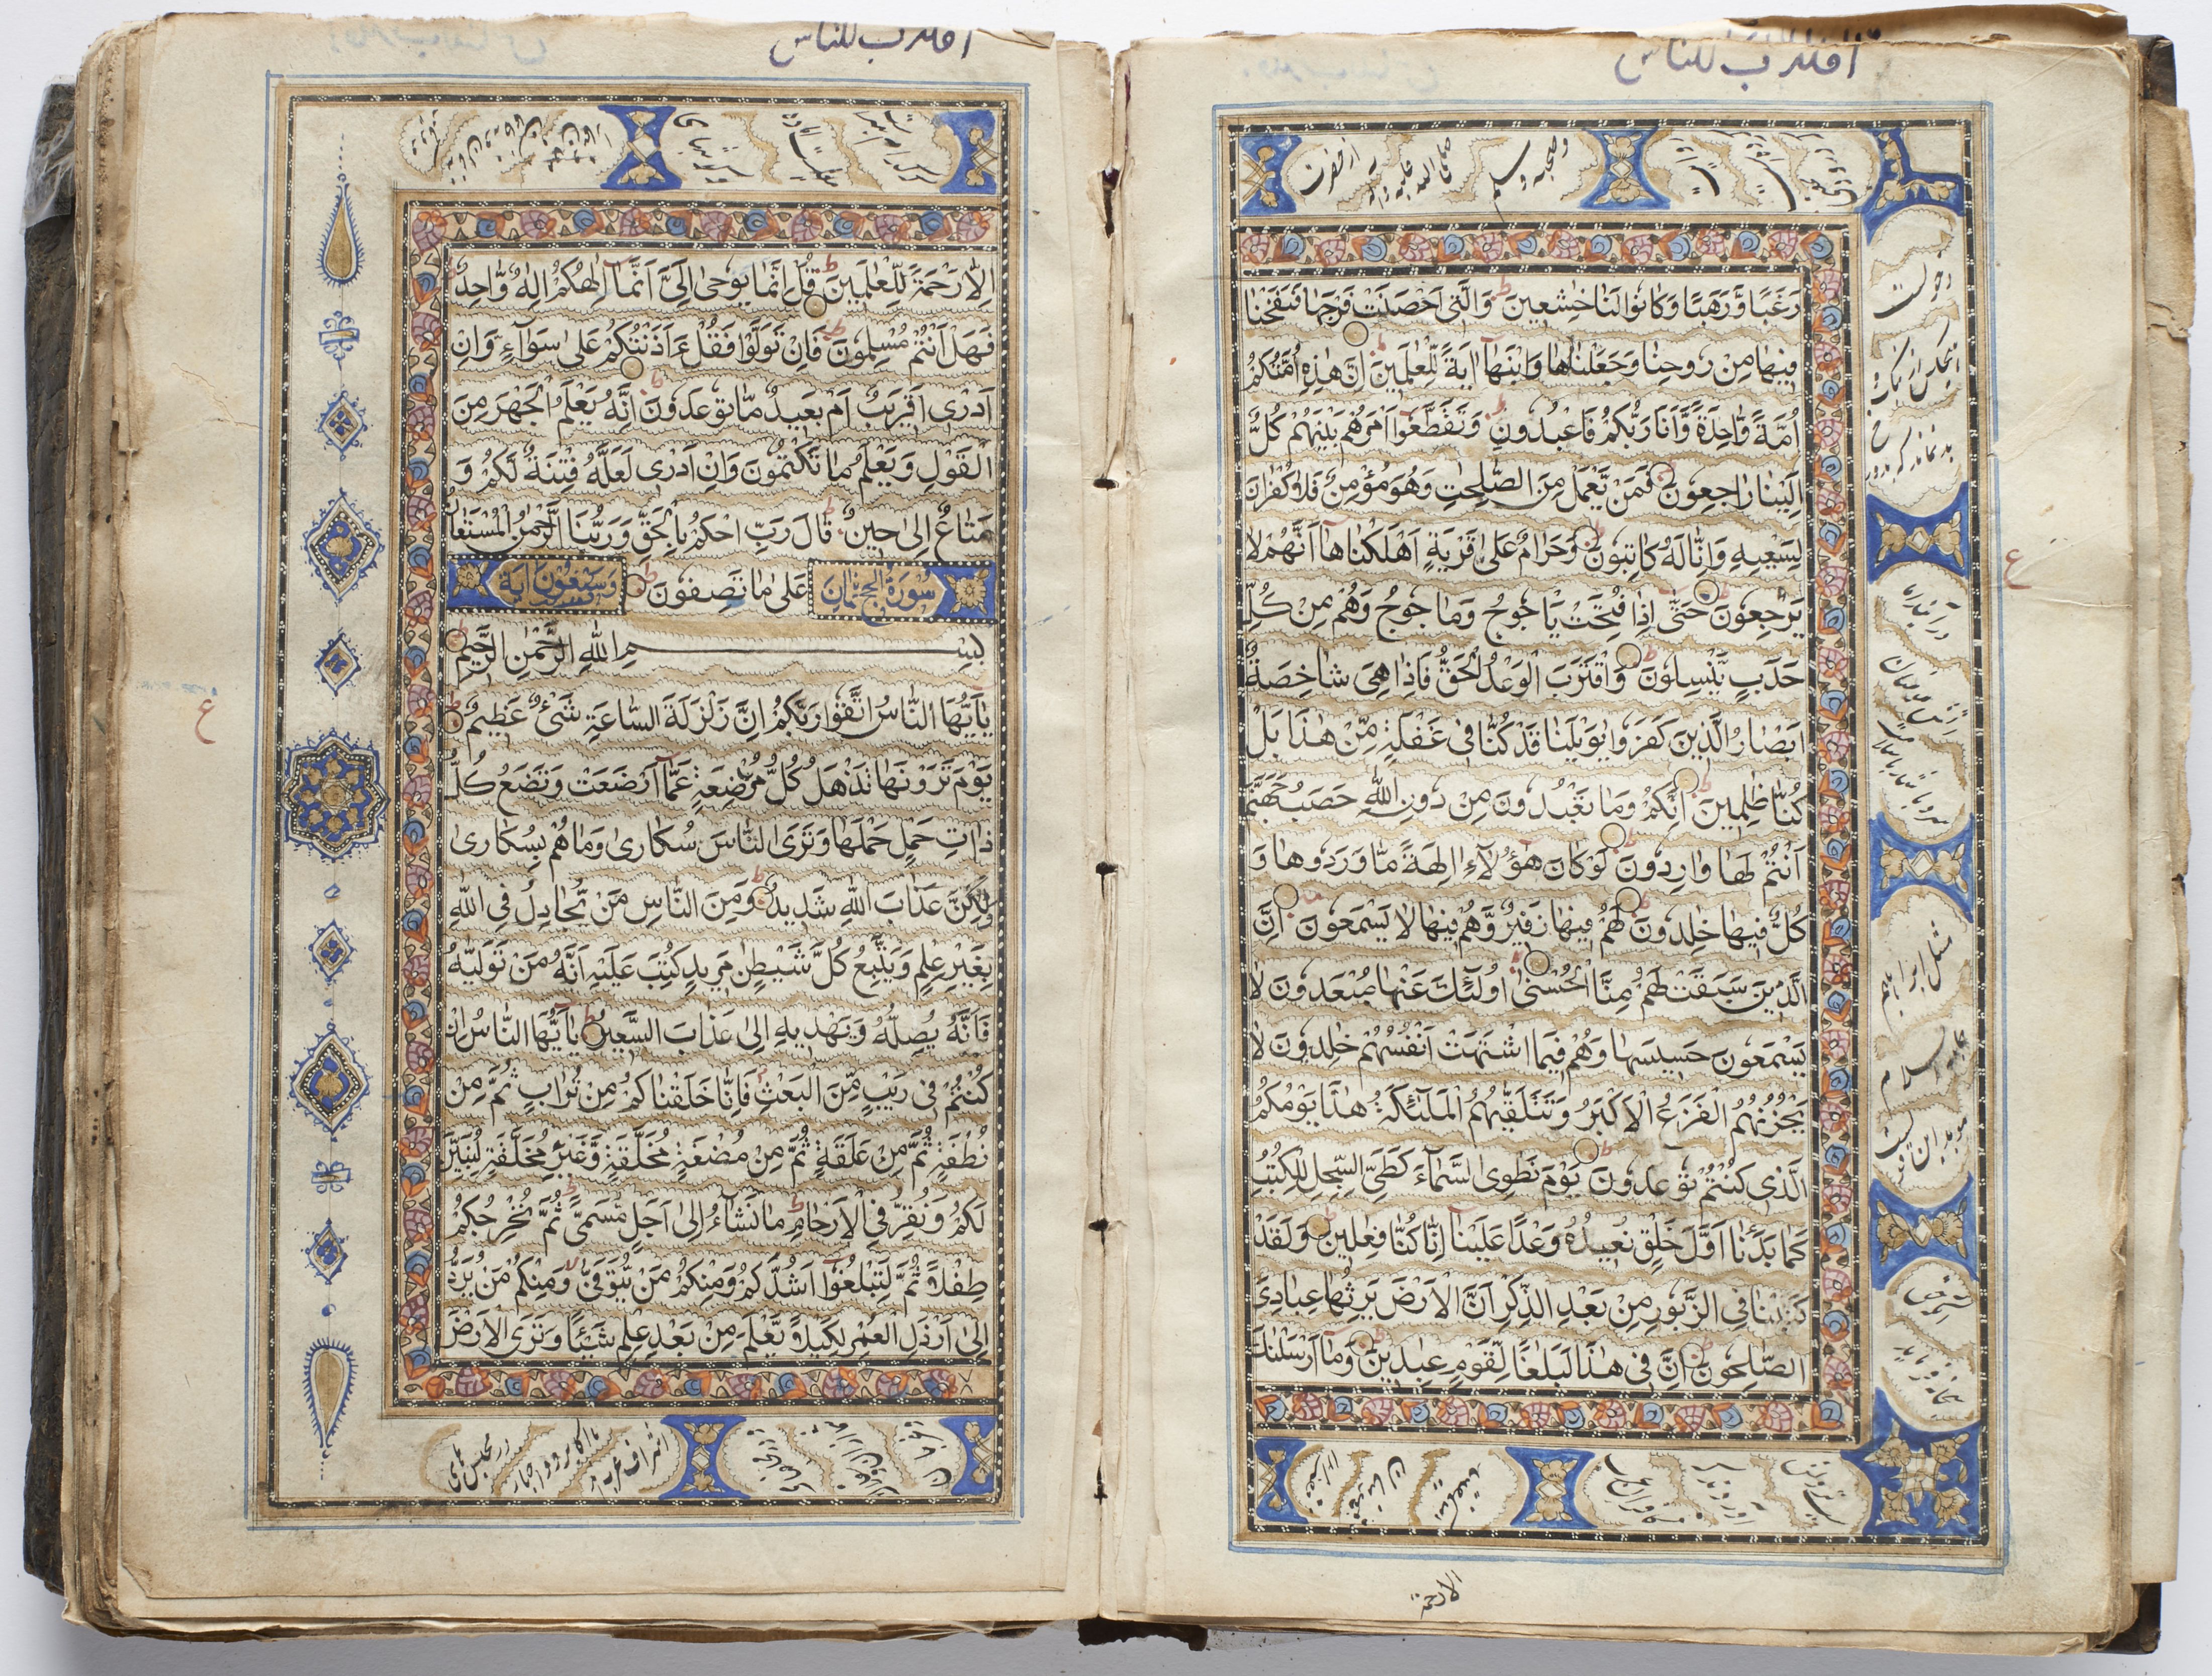 اقترب للناس
رَغَبًا وَّرَهَبًا وَكَانُوا لَنَا خٰشِعِينَ وَالَّتِي اَحْصَنَتْ فَرْجَهَا فَنَفَخْنَا
فِيهَا مِنْ رُوحِنَا وَجَعَلْنَاهَا وَابْنَهَا اٰيَةً لِّلْعٰلَمِينَ اِنَّ هٰذِهِ اُمَّتُكُمْ
اُمَّةً وَّاحِدَةً وَّاَنَا رَبُّكُمْ فَاعْبُدُونِ وَتَقَطَّعُوا اَمْرَهُمْ بَيْنَهُمْ كُلٌّ
اِلَيْنَا رَاجِعُونَ فَمَنْ يَّعْمَلْ مِنَ الصّٰلِحٰتِ وَهُوَ مُؤْمِنٌ فَلَا كُفْرَانَ
لِسَعْيِهِ وَاِنَّا لَهُ كَاتِبُونَ وَحَرَامٌ عَلٰى قَرْيَةٍ اَهْلَكْنَاهَا اَنَّهُمْ لَا
يَرْجِعُونَ حَتّٰى اِذَا فُتِحَتْ يَاْجُوجُ وَمَاْجُوجُ وَهُمْ مِنْ كُلِّ
حَدَبٍ يَّنْسِلُونَ وَاقْتَرَبَ الْوَعْدُ الْحَقُّ فَاِذَا هِيَ شَاخِصَةٌ
اَبْصَارُ الَّذِينَ كَفَرُوا يٰوَيْلَنَا قَدْ كُنَّا فِي غَفْلَةٍ مِّنْ هٰذَا بَلْ
كُنَّا ظٰلِمِينَ اِنَّكُمْ وَمَا تَعْبُدُونَ مِنْ دُونِ اللّٰهِ حَصَبُ جَهَنَّمَ
اَنْتُمْ لَهَا وَارِدُونَ لَوْ كَانَ هٰؤُلَاءِ اٰلِهَةً مَّا وَرَدُوهَا وَ
كُلٌّ فِيهَا خٰلِدُونَ لَهُمْ فِيهَا زَفِيرٌ وَّهُمْ فِيهَا لَا يَسْمَعُونَ اِنَّ
الَّذِينَ سَبَقَتْ لَهُمْ مِنَّا الْحُسْنٰى اُولٰئِكَ عَنْهَا مُبْعَدُونَ لَا
يَسْمَعُونَ حَسِيسَهَا وَهُمْ فِيمَا اشْتَهَتْ اَنْفُسُهُمْ خٰلِدُونَ لَا
يَحْزُنُهُمُ الْفَزَعُ الْاَكْبَرُ وَتَتَلَقّٰيهُمُ الْمَلٰئِكَةُ هٰذَا يَوْمُكُمُ
الَّذِي كُنْتُمْ تُوعَدُونَ يَوْمَ نَطْوِي السَّمَاءَ كَطَيِّ السِّجِلِّ لِلْكُتُبِ
كَمَا بَدَاْنَا اَوَّلَ خَلْقٍ نُعِيدُهُ وَعْدًا عَلَيْنَا اِنَّا كُنَّا فٰعِلِينَ وَلَقَدْ
كَتَبْنَا فِي الزَّبُورِ مِنْ بَعْدِ الذِّكْرِ اَنَّ الْاَرْضَ يَرِثُهَا عِبَادِيَ
الصّٰلِحُونَ اِنَّ فِي هٰذَا لَبَلٰغًا لِّقَوْمٍ عٰبِدِينَ وَمَا اَرْسَلْنٰكَ
وصحبه وسلم
صلى الله عليه وآله
از حضرت
مثل ابراهيم
عليه السلام
ع
الا رحمة
اقترب للناس
اِلَّا رَحْمَةً لِّلْعٰلَمِينَ قُلْ اِنَّمَا يُوحٰى اِلَيَّ اَنَّمَا اِلٰهُكُمْ اِلٰهٌ وَّاحِدٌ
فَهَلْ اَنْتُمْ مُسْلِمُونَ فَاِنْ تَوَلَّوْا فَقُلْ ءَاذَنْتُكُمْ عَلٰى سَوَاءٍ وَاِنْ
اَدْرِي اَقَرِيبٌ اَمْ بَعِيدٌ مَّا تُوعَدُونَ اِنَّهُ يَعْلَمُ الْجَهْرَ مِنَ
الْقَوْلِ وَيَعْلَمُ مَا تَكْتُمُونَ وَاِنْ اَدْرِي لَعَلَّهُ فِتْنَةٌ لَّكُمْ وَ
مَتَاعٌ اِلٰى حِينٍ قَالَ رَبِّ احْكُمْ بِالْحَقِّ وَرَبُّنَا الرَّحْمٰنُ الْمُسْتَعَانُ
سورة الحج ثمان عَلٰى مَا تَصِفُونَ وسبعون آية
بِسْمِ اللّٰهِ الرَّحْمٰنِ الرَّحِيمِ
يٰاَيُّهَا النَّاسُ اتَّقُوا رَبَّكُمْ اِنَّ زَلْزَلَةَ السَّاعَةِ شَيْءٌ عَظِيمٌ
يَوْمَ تَرَوْنَهَا تَذْهَلُ كُلُّ مُرْضِعَةٍ عَمَّا اَرْضَعَتْ وَتَضَعُ كُلُّ
ذَاتِ حَمْلٍ حَمْلَهَا وَتَرَى النَّاسَ سُكَارٰى وَمَا هُمْ بِسُكَارٰى
وَلٰكِنَّ عَذَابَ اللّٰهِ شَدِيدٌ وَمِنَ النَّاسِ مَنْ يُّجَادِلُ فِي اللّٰهِ
بِغَيْرِ عِلْمٍ وَيَتَّبِعُ كُلَّ شَيْطٰنٍ مَّرِيدٍ كُتِبَ عَلَيْهِ اَنَّهُ مَنْ تَوَلَّاهُ
فَاَنَّهُ يُضِلُّهُ وَيَهْدِيهِ اِلٰى عَذَابِ السَّعِيرِ يٰاَيُّهَا النَّاسُ اِنْ
كُنْتُمْ فِي رَيْبٍ مِّنَ الْبَعْثِ فَاِنَّا خَلَقْنَاكُمْ مِنْ تُرَابٍ ثُمَّ مِنْ
نُطْفَةٍ ثُمَّ مِنْ عَلَقَةٍ ثُمَّ مِنْ مُضْغَةٍ مُّخَلَّقَةٍ وَّغَيْرِ مُخَلَّقَةٍ لِّنُبَيِّنَ
لَكُمْ وَنُقِرُّ فِي الْاَرْحَامِ مَا نَشَاءُ اِلٰى اَجَلٍ مُّسَمًّى ثُمَّ نُخْرِجُكُمْ
طِفْلًا ثُمَّ لِتَبْلُغُوا اَشُدَّكُمْ وَمِنْكُمْ مَنْ يُّتَوَفّٰى وَمِنْكُمْ مَنْ يُّرَدُّ
اِلٰى اَرْذَلِ الْعُمُرِ لِكَيْلَا يَعْلَمَ مِنْ بَعْدِ عِلْمٍ شَيْئًا وَتَرَى الْاَرْضَ
ع